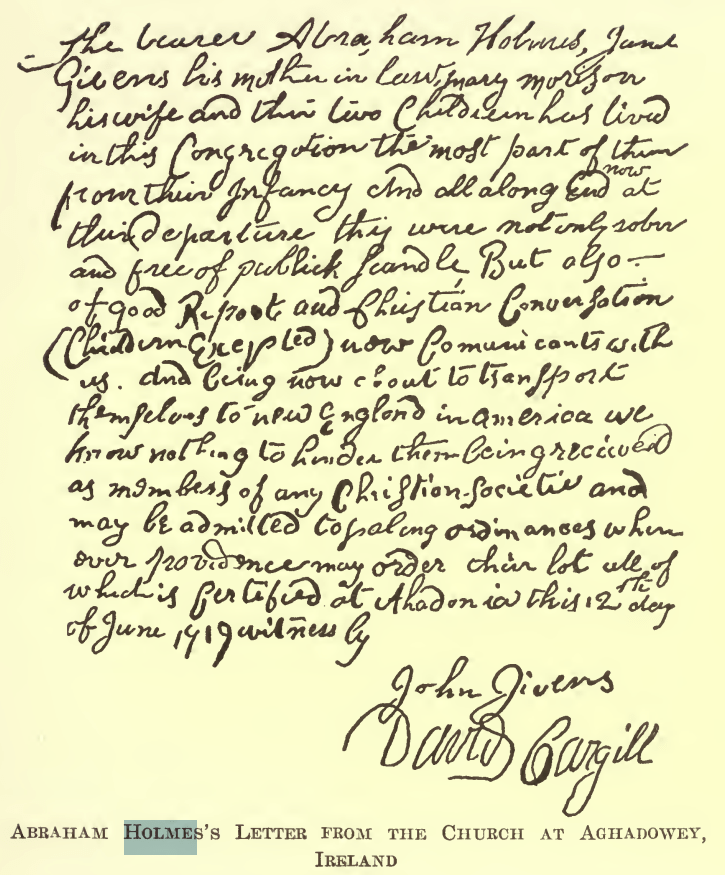 The bearer Abraham Holmes, Jane
Givens his mother in law, mary morison
his wife and their two Childiern has lived
in this Congregation the most part of them
from their Infancy and all along End now at
their departure they were not only sober
and free of publick scandle, But also —
of good Report and Christian Conversation
(Childiern Excepted) now Comunicants with
us. And being now about to transport
themselves to new England in america we
know nothing to hinder them being received
as members of any Christian-Societie and
may be admitted to sealing ordinances where
ever providence may order their lot all of
which is Certified at Ahadonia this 12th day
of June 1719 witness by
John Givens
David Cargill
ABRAHAM HOLMES'S LETTER FROM THE CHURCH AT AGHADOWEY,
IRELAND